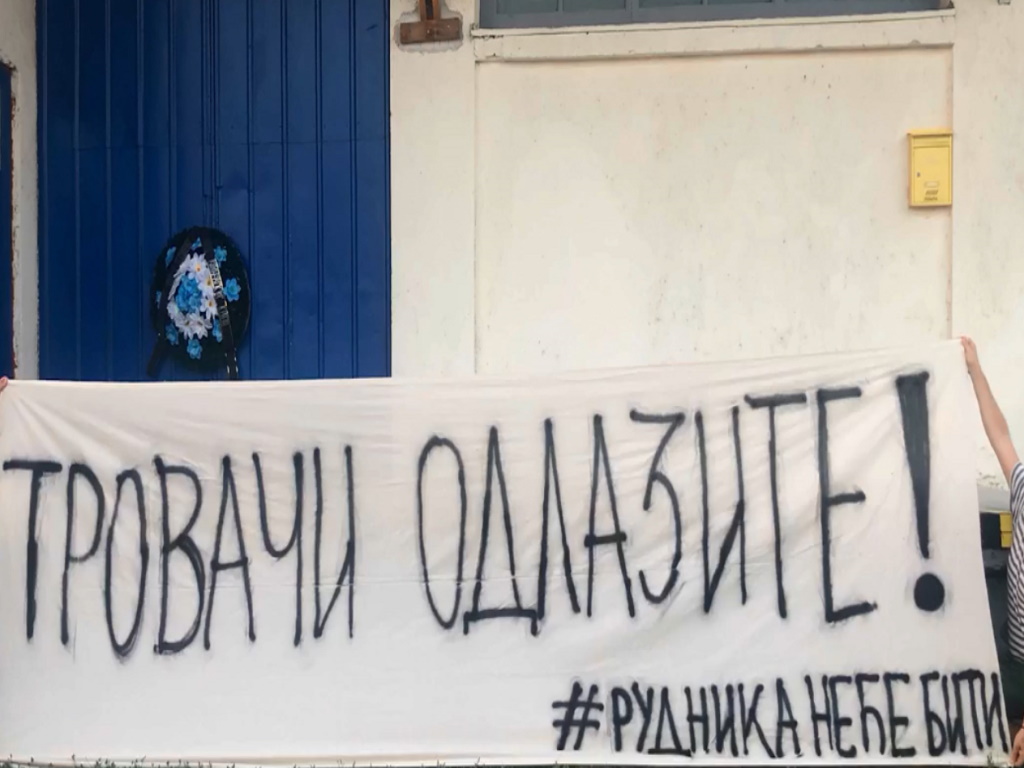 ТРОВАЧИ ОДЛАЗИТЕ!
#РУДНИКА НЕЋЕ БИТИ